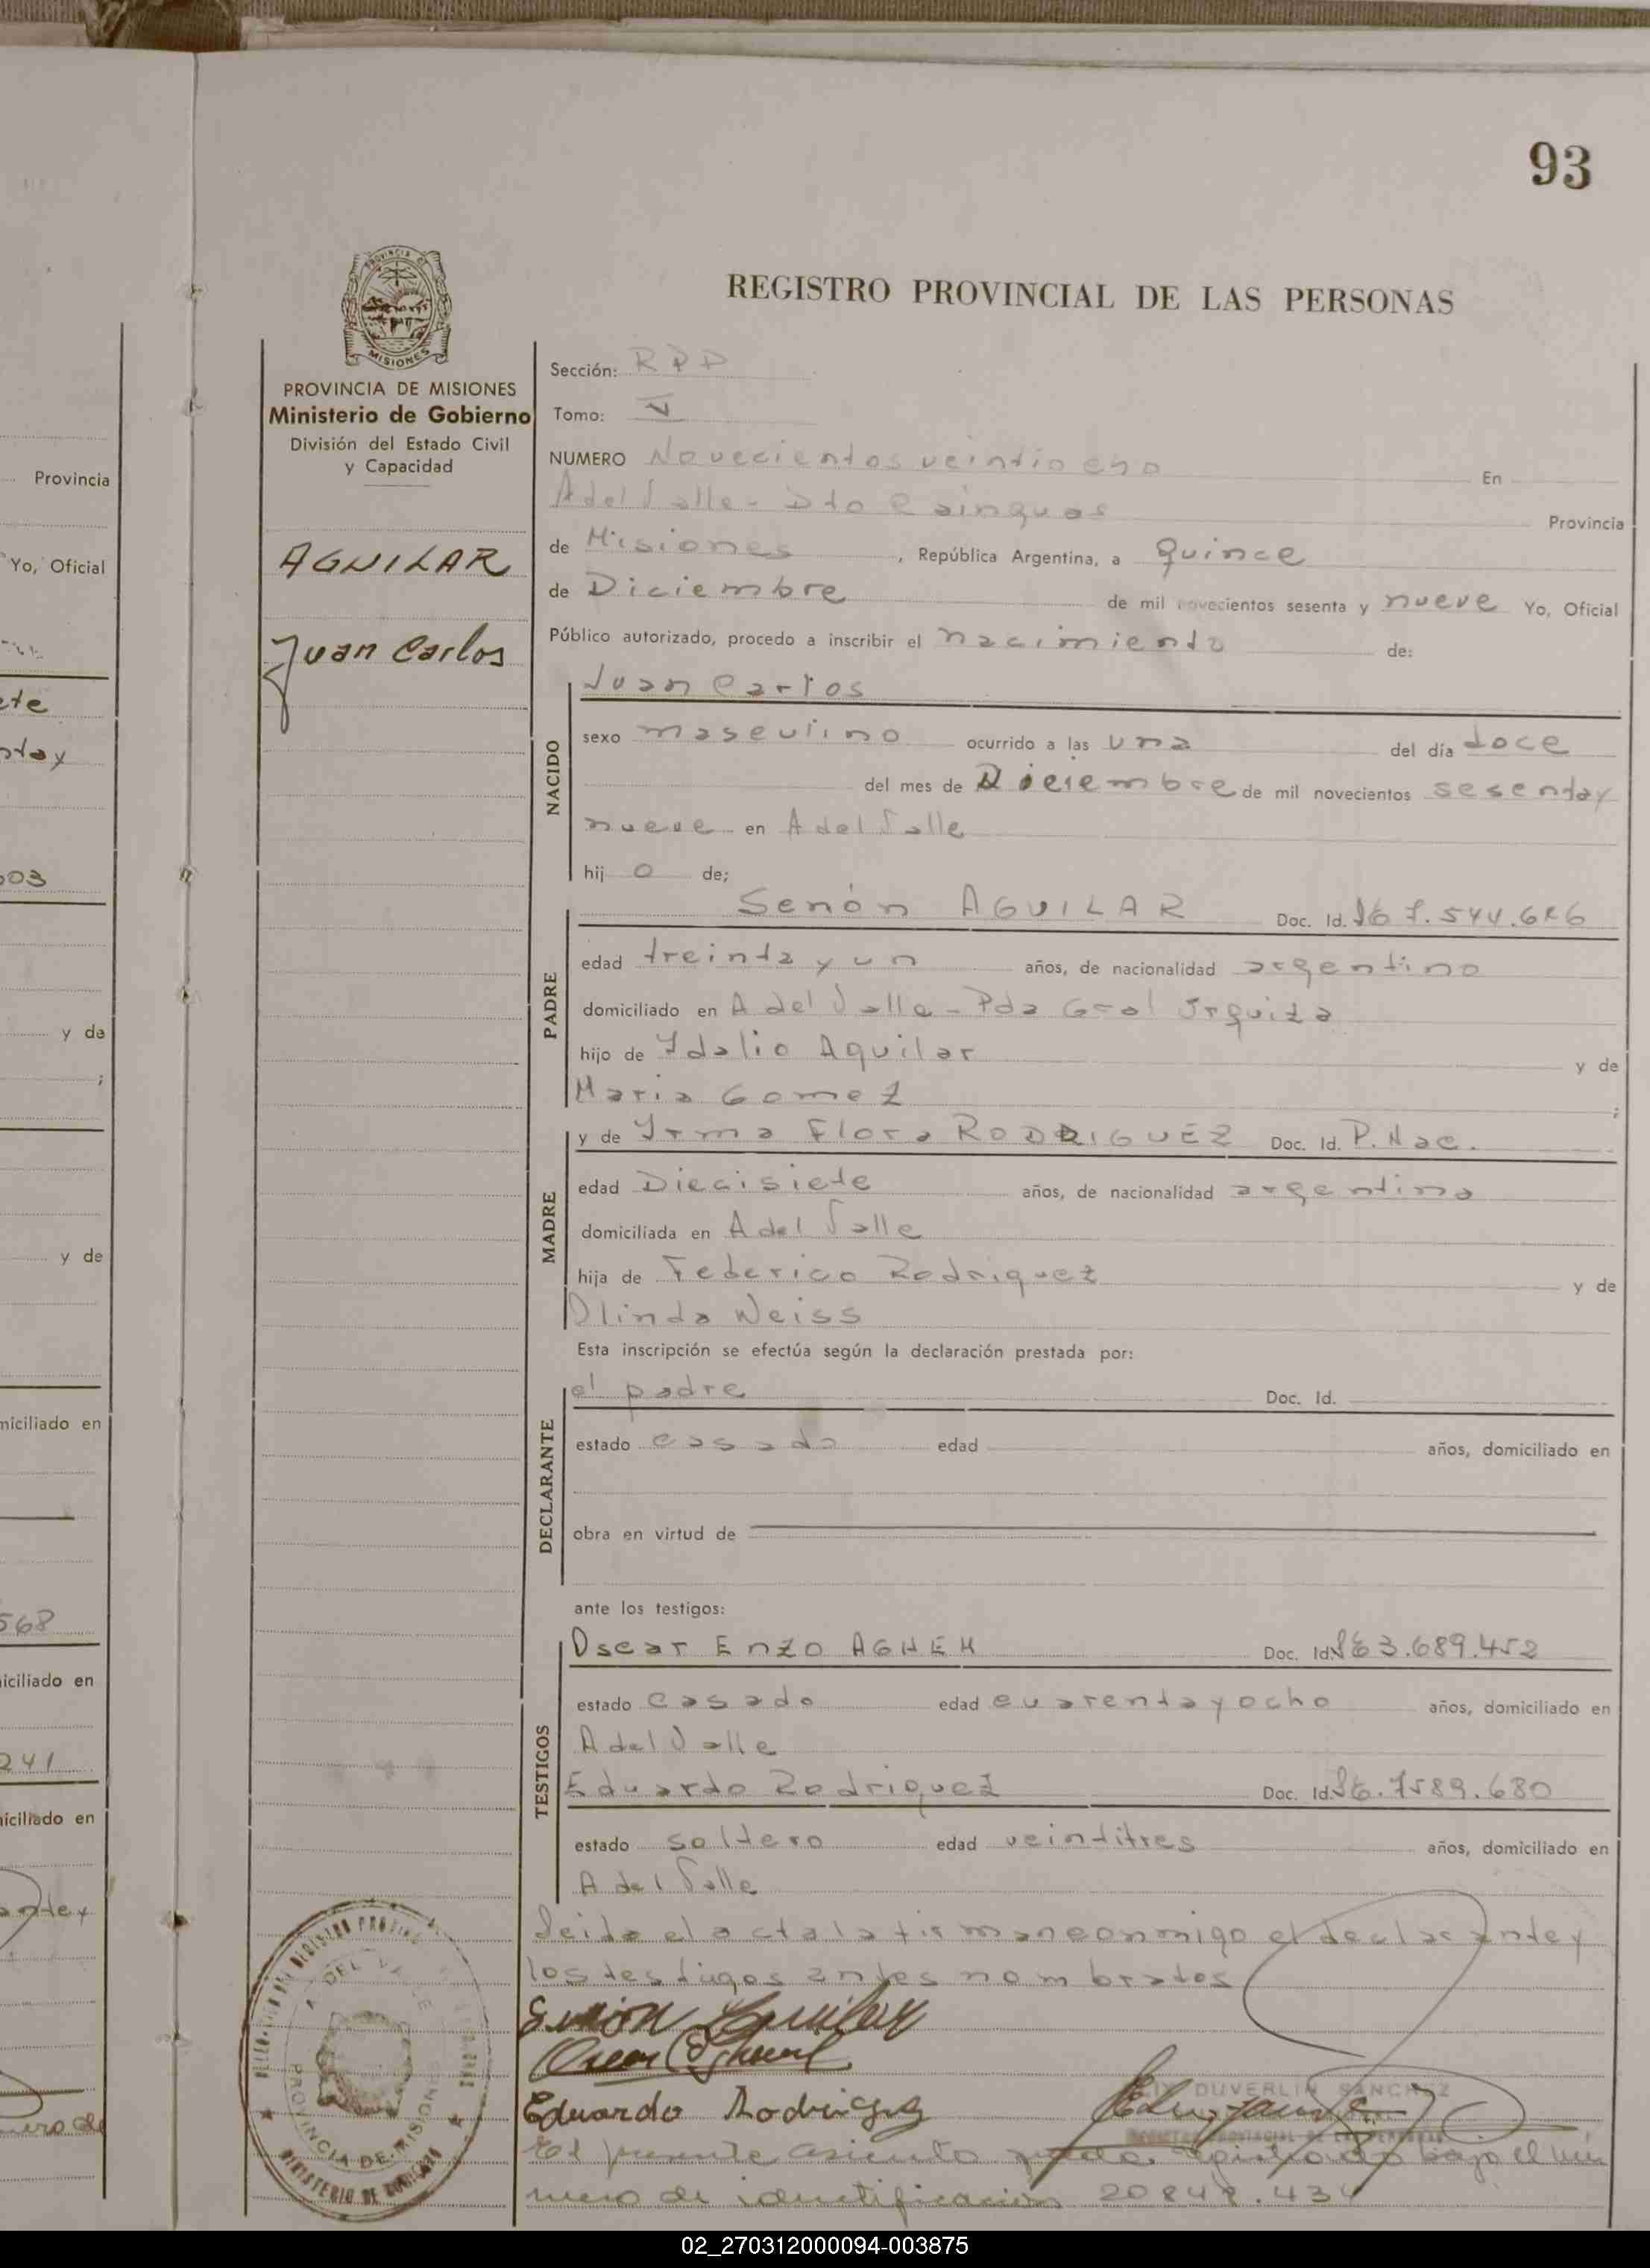 93
REGISTRO PROVINCIAL DE LAS PERSONAS
PROVINCIA DE MISIONES
Ministerio de Gobierno
División del Estado Civil
y Capacidad
AGUILAR
Juan Carlos
Sección: RPP
Tomo: V
NUMERO Novecientos veintiocho En
A del Valle - Dto Cainguas Provincia
de Misiones, República Argentina, a quince
de Diciembre de mil novecientos sesenta y nueve Yo, Oficial
Público autorizado, procedo a inscribir el nacimiento de:
NACIDO
Juan Carlos
sexo masculino ocurrido a las una del día doce
del mes de Diciembre de mil novecientos sesenta y
nueve en A del Valle
hij o de;
PADRE
Senón AGUILAR Doc. Id.
edad treinta y un años, de nacionalidad argentino
domiciliado en A del Valle - Pda Gral Urquiza
hijo de Idalio Aguilar y de
Maria Gomez ;
MADRE
y de Irma Flora RODRIGUEZ Doc. Id. P. Nac.
edad Diecisiete años, de nacionalidad argentina
domiciliada en A del Valle
hija de Federico Rodriguez y de
Olinda Weiss
Esta inscripción se efectúa según la declaración prestada por:
DECLARANTE
el padre Doc. Id.
estado casado edad años, domiciliado en
obra en virtud de
ante los testigos:
TESTIGOS
Oscar Enzo AGHEM Doc. Id. 3.689.452
estado casado edad cuarenta y ocho años, domiciliado en
A del Valle
Eduardo Rodriguez Doc. Id. 7589.680
estado soltero edad veintitres años, domiciliado en
A del Valle
Leida el acta la firman conmigo el declarante y
los testigos antes nombrados
Senón Aguilar
Eduardo Rodriguez
DUVERLIN SANCHEZ
El presente asiento queda registrado bajo el nú
mero de identificación 20848.434
A. DEL VALLE
PROVINCIA DE MISIONES
MINISTERIO DE GOBIERNO
Provincia
Yo, Oficial
y de
;
y de
miciliado en
568
iciliado en
241
iciliado en
02_270312000094-003875